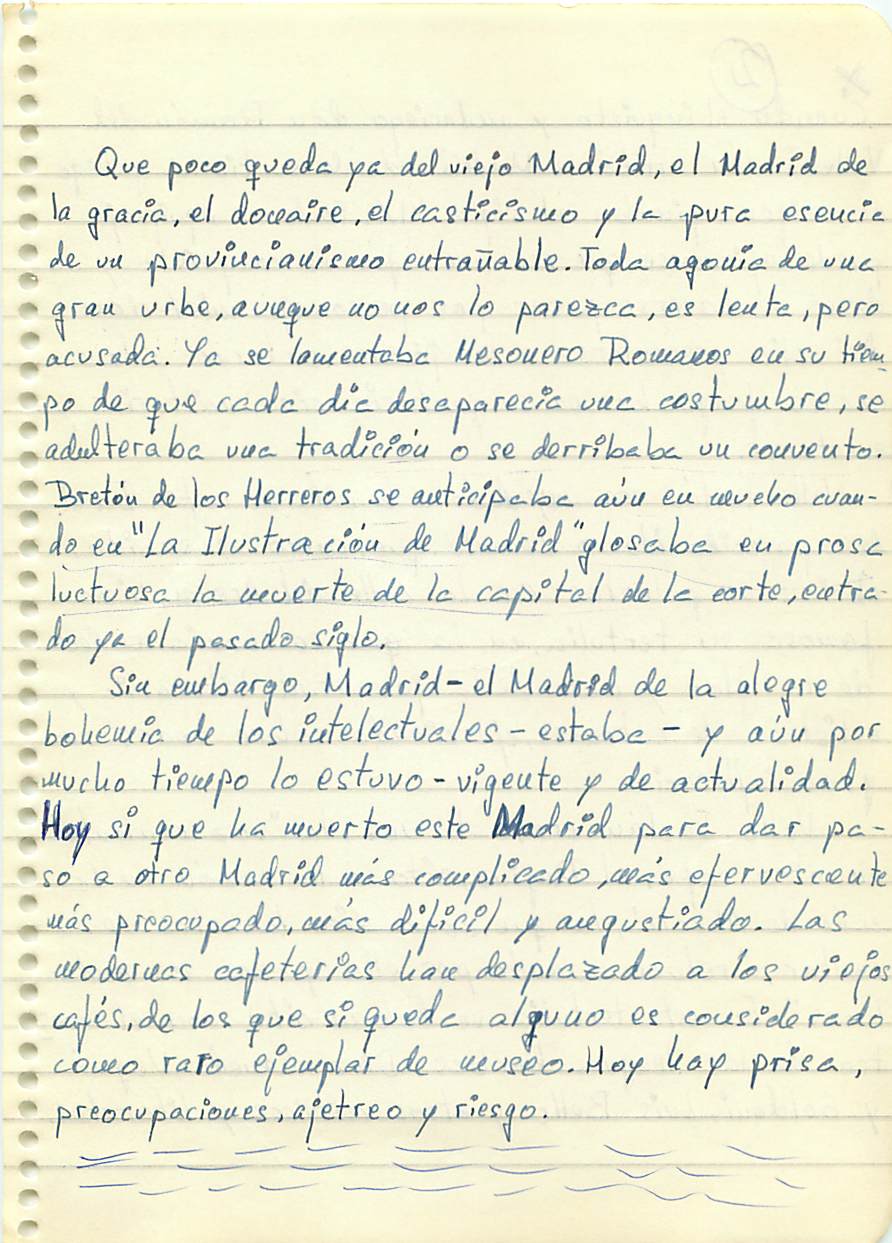 Que poco queda ya del viejo Madrid, el Madrid de
la gracia, el donaire, el casticismo y la pura esencia
de un provincianismo entrañable. Toda agonia de una
gran urbe, aunque no nos lo parezca, es lenta, pero
acusada. Ya se lamentaba Mesonero Romanos en su tiem
po de que cada dia desaparecia una costumbre, se
adulteraba una tradición o se derribaba un convento.
Bretón de los Herreros se anticipaba aún en mucho cuan-
do en "La Ilustración de Madrid" glosaba en prosa
luctuosa la muerte de la capital de la corte, entra-
do ya el pasado siglo.
Sin embargo, Madrid - el Madrid de la alegre
bohemia de los intelectuales - estaba - y aún por
mucho tiempo lo estuvo - vigente y de actualidad.
Hoy si que ha muerto este Madrid para dar pa-
so a otro Madrid más complicado, más efervescente
más preocupado, más dificil y angustiado. Las
modernas cafeterias han desplazado a los viejos
cafés, de los que si queda alguno es considerado
como raro ejemplar de museo. Hoy hay prisa,
preocupaciones, ajetreo y riesgo.